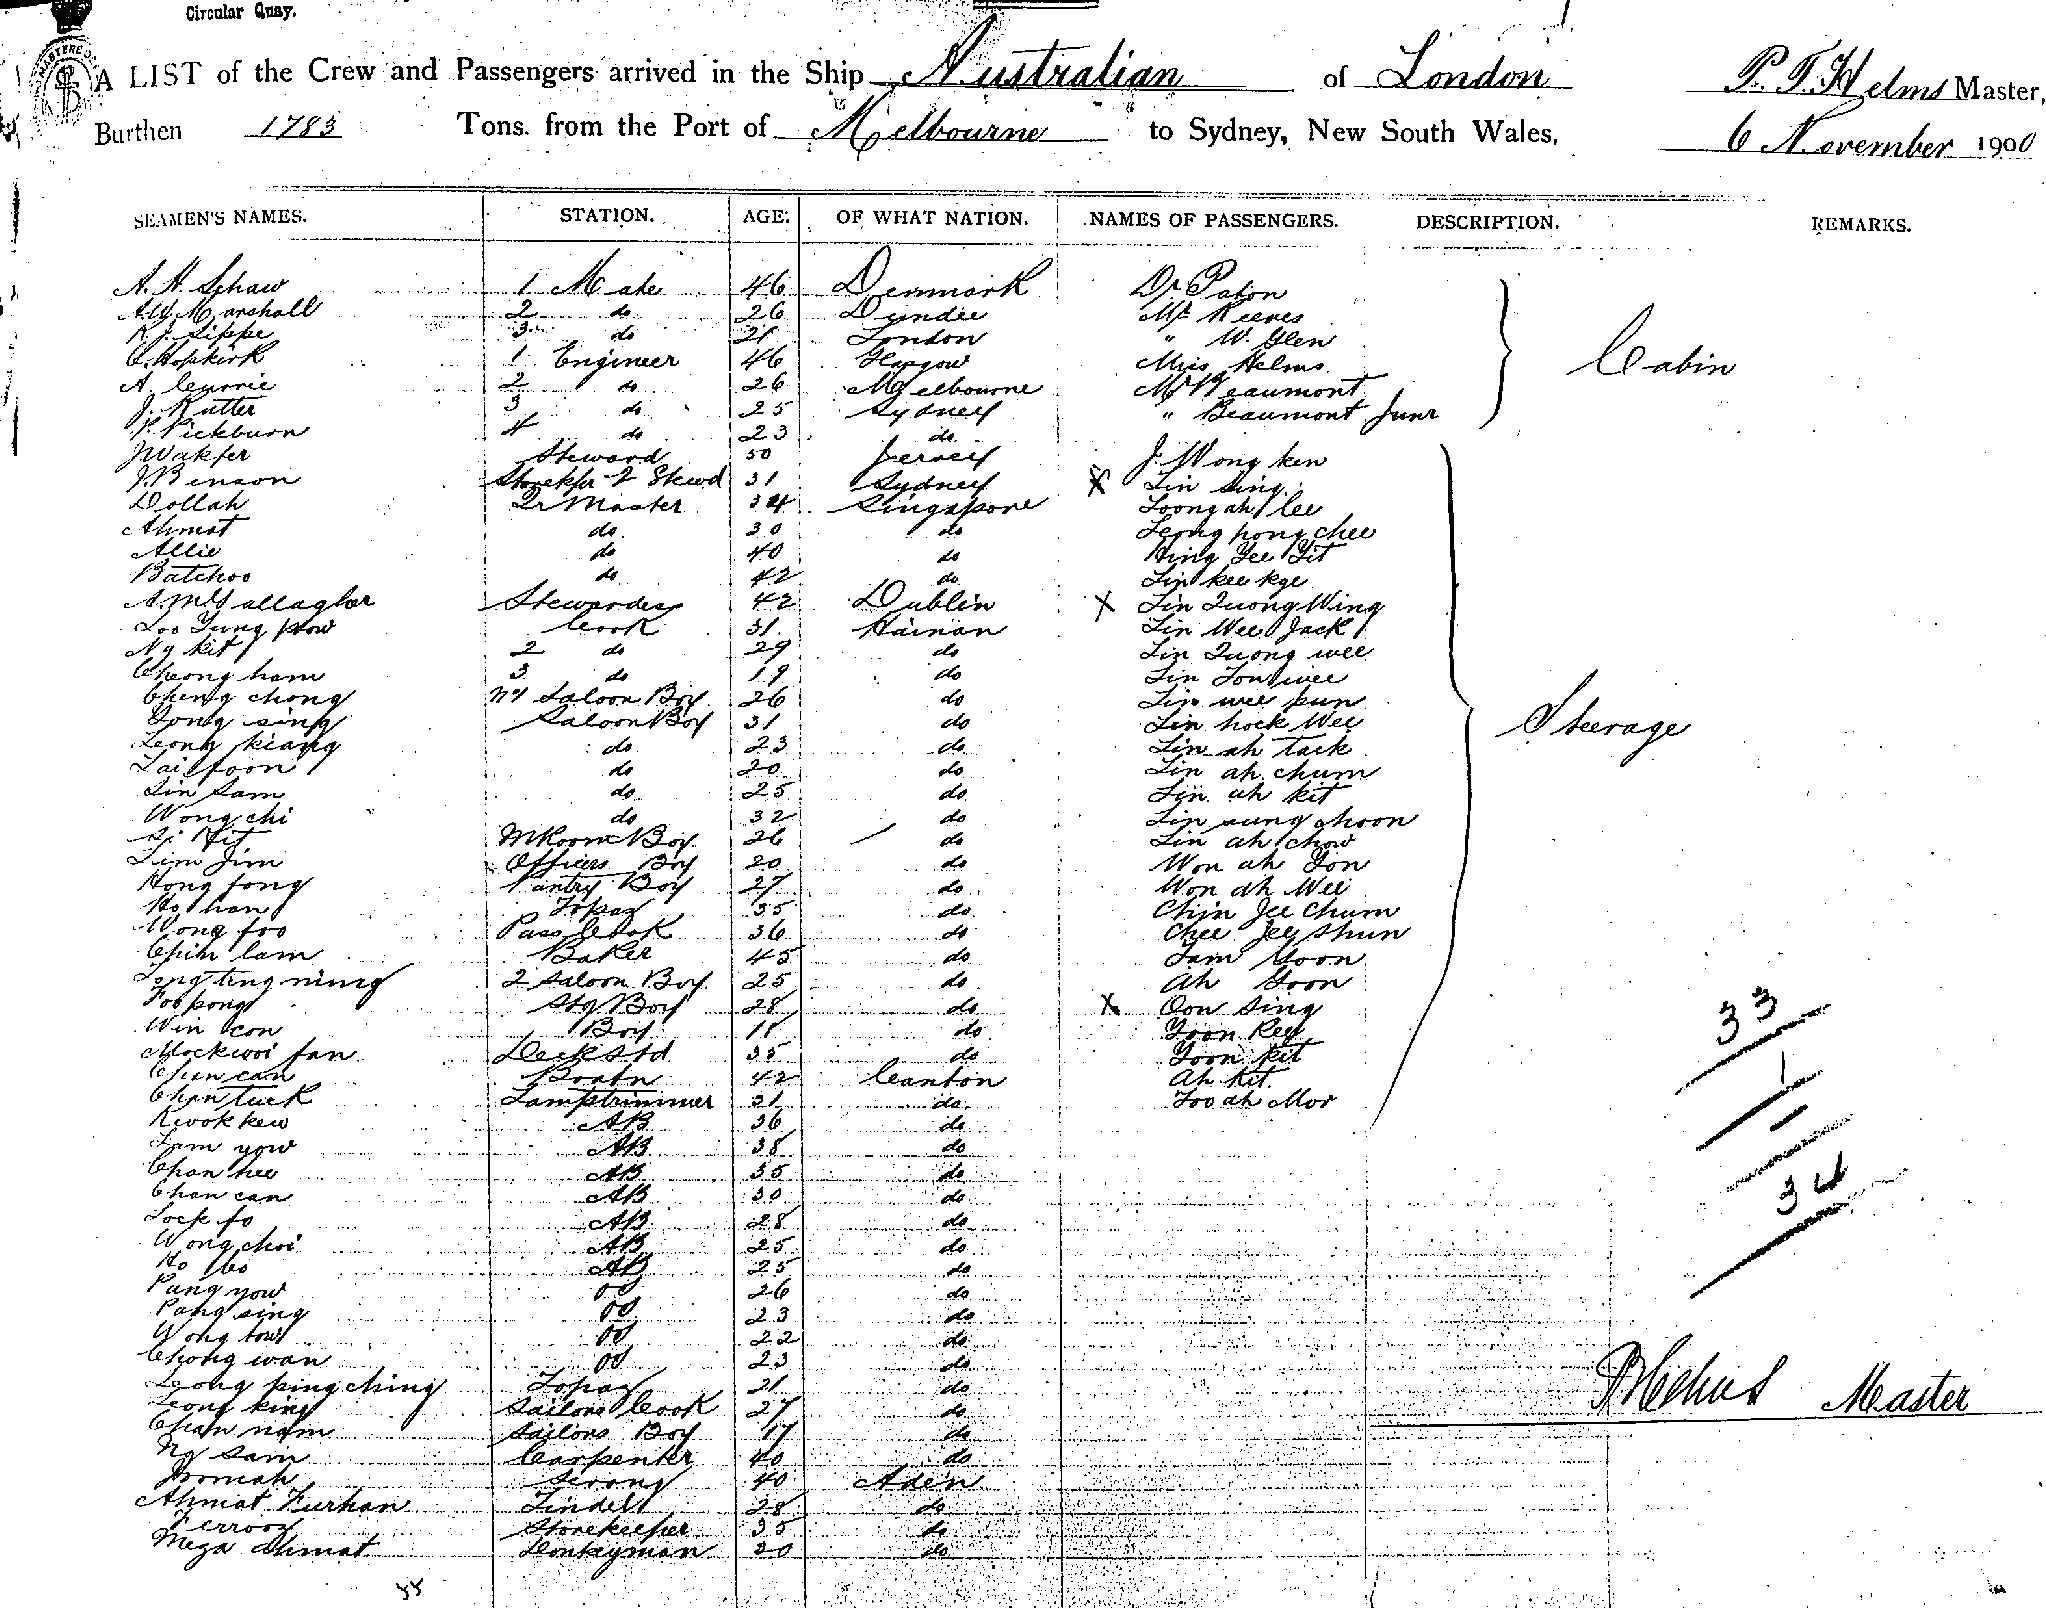 Circular Quay.
A LIST of the Crew and Passengers arrived in the Ship "Australian" of London P. T. Helms Master,
Burthen 1783 Tons. from the Port of Melbourne to Sydney, New South Wales, 6 November 1900
SEAMEN'S NAMES. STATION. AGE. OF WHAT NATION. NAMES OF PASSENGERS. DESCRIPTION. REMARKS.
A. H. Schaw 1 Mate 46 Denmark Dr Paton
AW Marshall 2 do 26 Dundee Mr Reeves
R. J. Sippe 3 do 21 London " W. Glen
C. Hopkirk 1 Engineer 46 Glasgow Miss Helms
A. 2 do 26 Melbourne Mr Beaumont Cabin
J. Rutter 3 do 25 Sydney " Beaumont Junr
P. Pickburn 4 do 23 do
J Wakfer Steward 50 Jersey J. Wong ken
J. Benson Storekpr & Stewd 31 Sydney X Lin sing
Dollah Qr Master 34 Singapore Loong ah lee
Ahmat do 30 do Leong hong chee
Allie do 40 do Hing Yee Yit
Batchoo do 42 do Lin kee kge
A McGallagher Stewardess 42 Dublin X Lin Quong Wing
Loo Yung pow Cook 31 Hainan Lin Wee Jack
Ng kit 2 do 29 do Lin Quong wee
Cheong ham 3 do 19 do Lin Lon wee
Cheng chong No 1 Saloon Boy 26 do Lin wee pun
Yong sing Saloon Boy 31 do Lin hock Wee Steerage
Leong kiang do 23 do Lin ah tack
Lai foon do 20 do Lin ah chum
Lin Sam do 25 do Lin ah kit
Wong chi do 32 do Lin sung choon
Si Yit M Room Boy 26 do Lin ah chow
Lim Jim Officers Boy 20 do Won ah Yon
Hong fong Pantry Boy 27 do Won ah Wee
Ho han Topaz 35 do Chin Jee Chum
Wong foo Pass Cook 36 do Chee Jee Shun
Chin lam Baker 45 do Sam Yoon
Long ting ning 2 Saloon Boy 25 do Ah Yoon
Foo pong Stg Boy 28 do X Oon Sing
Win con Boy do Yoon Key 33
Mockwoi fan Deck Std 35 do Yoon kit
Chan can Boatn 42 Canton Ah Kit 1
Chan tuck Lamptrimmer 31 do Foo ah Mor
Kwok kew AB 36 do
Lam yow AB 38 do
Chan hee AB 35 do
Chan can AB 30 do 34
Lock fo AB 28 do
Wong choi AB 25 do
Ho bo AB 25 do
Pang yow OS 26 do
Pang sing OS 23 do
Wong tow OS 22 do
Chong wan OS 23 do
Leong ping ching Topaz 21 do
Leong king Sailors Cook 27 do P Helms Master
Chan nam Sailors Boy 17 do
Ng Sam Carpenter 40 do
Jromah Serong 40 Aden
Ahmat Furhan Tindel 28 do
Ferrooz Storekeeper 35 do
Mega Ahmat Donkeyman 30 do